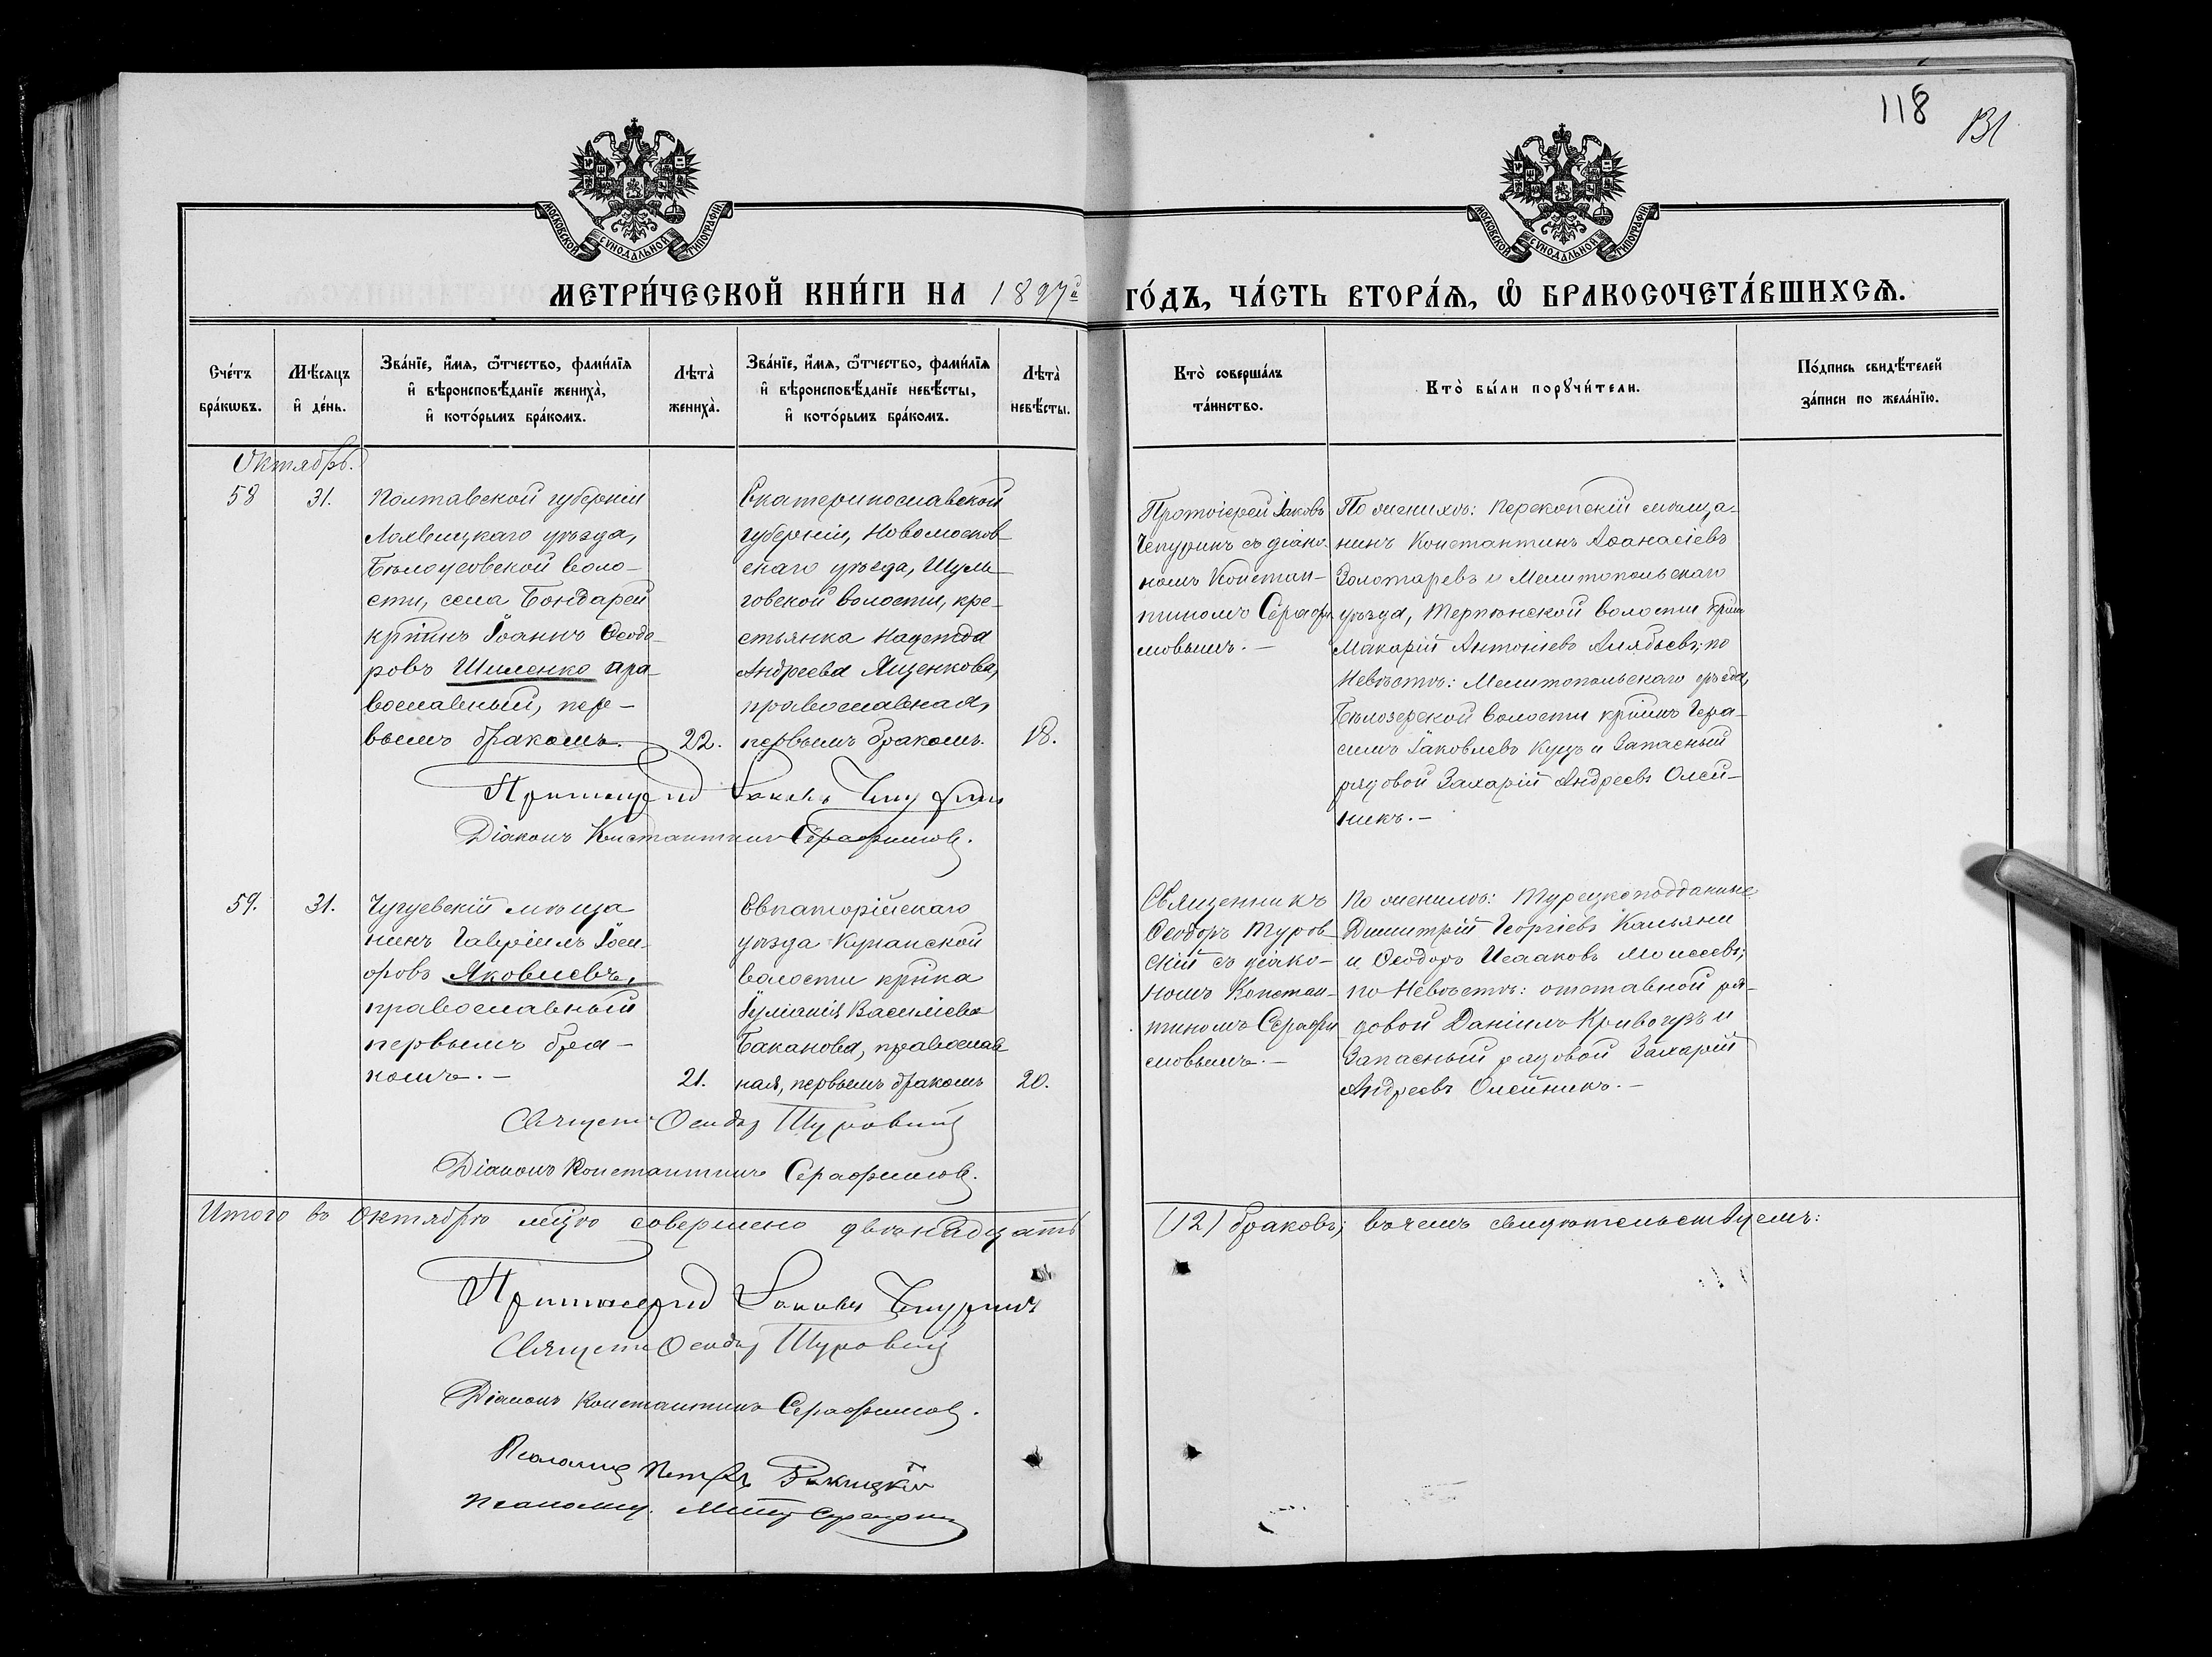 118
131
МОСКОВСКОЙ СУНОДАЛЬНОЙ ТИПОГРАФІИ
МОСКОВСКОЙ СУНОДАЛЬНОЙ ТИПОГРАФІИ
МЕТРИ́ЧЕСКОЙ КНИ́ГИ НА 1897й ГО́ДЪ, ЧА́СТЬ ВТОРА́Ѧ, Ѽ БРАКОСОЧЕТА́ВШИХСѦ.
Сче́тъ
бра́кѡвъ.
Мѣ́сѧцъ
и҆ де́нь.
Зва́нїе, и҆́мѧ, ѻ҆́тчество, фами́лїѧ
и҆ вѣроисповѣ́данїе жениха̀,
и҆ кото́рымъ бра́комъ.
Лѣта̀
жениха̀.
Зва́нїе, и҆́мѧ, ѻ҆́тчество, фами́лїѧ
и҆ вѣроисповѣ́данїе невѣ́сты,
и҆ кото́рымъ бра́комъ.
Лѣта̀
невѣ́сты.
Кто̀ соверша́лъ
та́инство.
Кто̀ бы́ли порꙋчи́тели.
По́дпись свидѣ́телей
за́писи по жела́нїю.
Октябрь.
58
31.
Полтавской губерніи
Лохвицкаго уѣзда,
Бѣлоусовской воло-
сти, села Бондарей
крнинъ Іоаннъ Ѳеодо-
ровъ Шиленко пра-
вославный, пер-
вымъ бракомъ.
22.
Екатеринославской
губерніи, Новомосков-
скаго уѣзда, Шуль-
говской волости, кре-
стьянка Надежда
Андреева Ященкова,
православная,
первымъ бракомъ.
18.
Протоіерей Іаковъ
Чепуринъ съ діако-
номъ Констан-
тиномъ Серафи-
мовымъ.-
По женихѣ: Перекопскій мѣща-
нинъ Константинъ Аѳанасіевъ
Золотаревъ и Мелитопольскаго
уѣзда, Терпѣнской волости крнинъ
Макарій Антоніевъ Алябьевъ; по
Невѣстѣ: Мелитопольскаго уѣзда,
Бѣлозерской волости крнинъ Гера-
симъ Іаковлевъ Куцъ и Запасный
рядовой Захарій Андреевъ Олей-
никъ.-
Протоіерей Іаковъ Чепуринъ
Діаконъ Константинъ Серафимовъ.
59.
31.
Чугуевскій мѣща
нинъ Гавріилъ Іоси-
форовъ Яковлевъ,
православный
первымъ бра-
комъ.-
21.
Евпаторійскаго
уѣзда Курманской
волости крнка
Іуліанія Василіева
Баканова, православ
ная, первымъ бракомъ
20.
Священникъ
Ѳеодоръ Туров-
скій съ діако-
номъ Констан-
тиномъ Серафи
мовымъ.-
По женихѣ: Турецкоподданные
Димитрій Георгіевъ Кальяни
и Ѳеодоръ Исааковъ Моисеевъ;
по Невѣстѣ: отставной ря-
довой Даніилъ Кривогузъ и
Запасный рядовой Захарій
Андреевъ Олейникъ.-
Священ. Ѳеодоръ Туровскій
Діаконъ Константинъ Серафимовъ.
Итого въ Октябрѣ мѣсяцѣ совершено двѣнадцать (12) браковъ; въ чемъ свидѣтельствуемъ:
Протоіерей Іаковъ Чепуринъ
Священ. Ѳеодоръ Туровскій
Діаконъ Константинъ Серафимовъ.
Псаломщ. Петръ Ракицкій
Псаломщ.